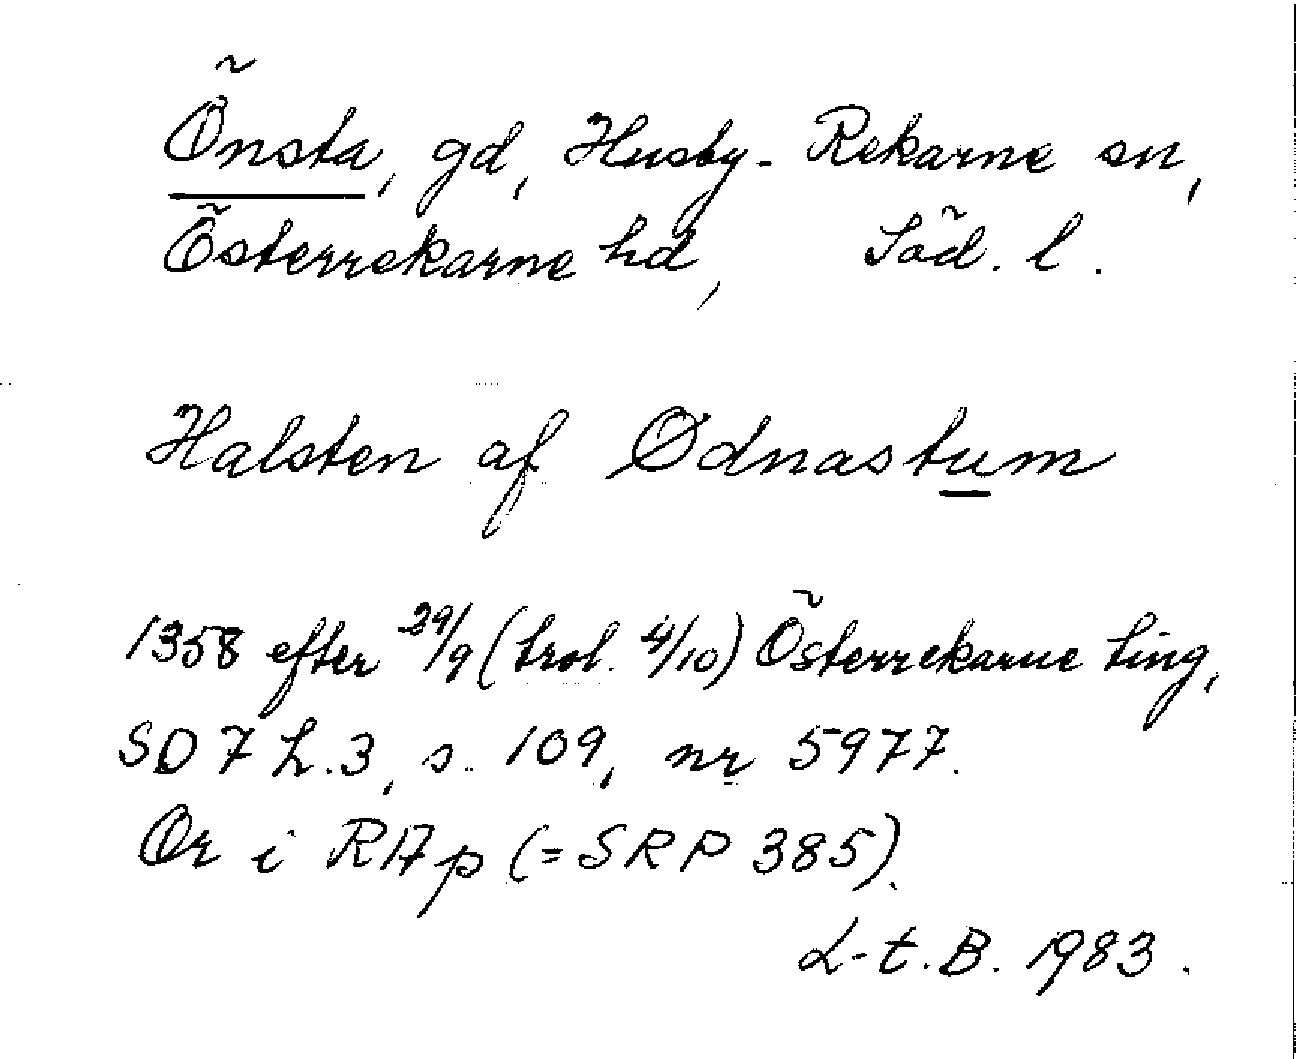 Önsta, gd, Husby-Rekarne sn,
Österrekarne hd, Söd. l.
Halsten af Ødnastum
1358 efter 29/9 (trol. 4/10) Österrekarne ting,
SD 7 h.3, s. 109, nr 5977.
Or i RAp (=SRP 385).
L-t.B. 1983.